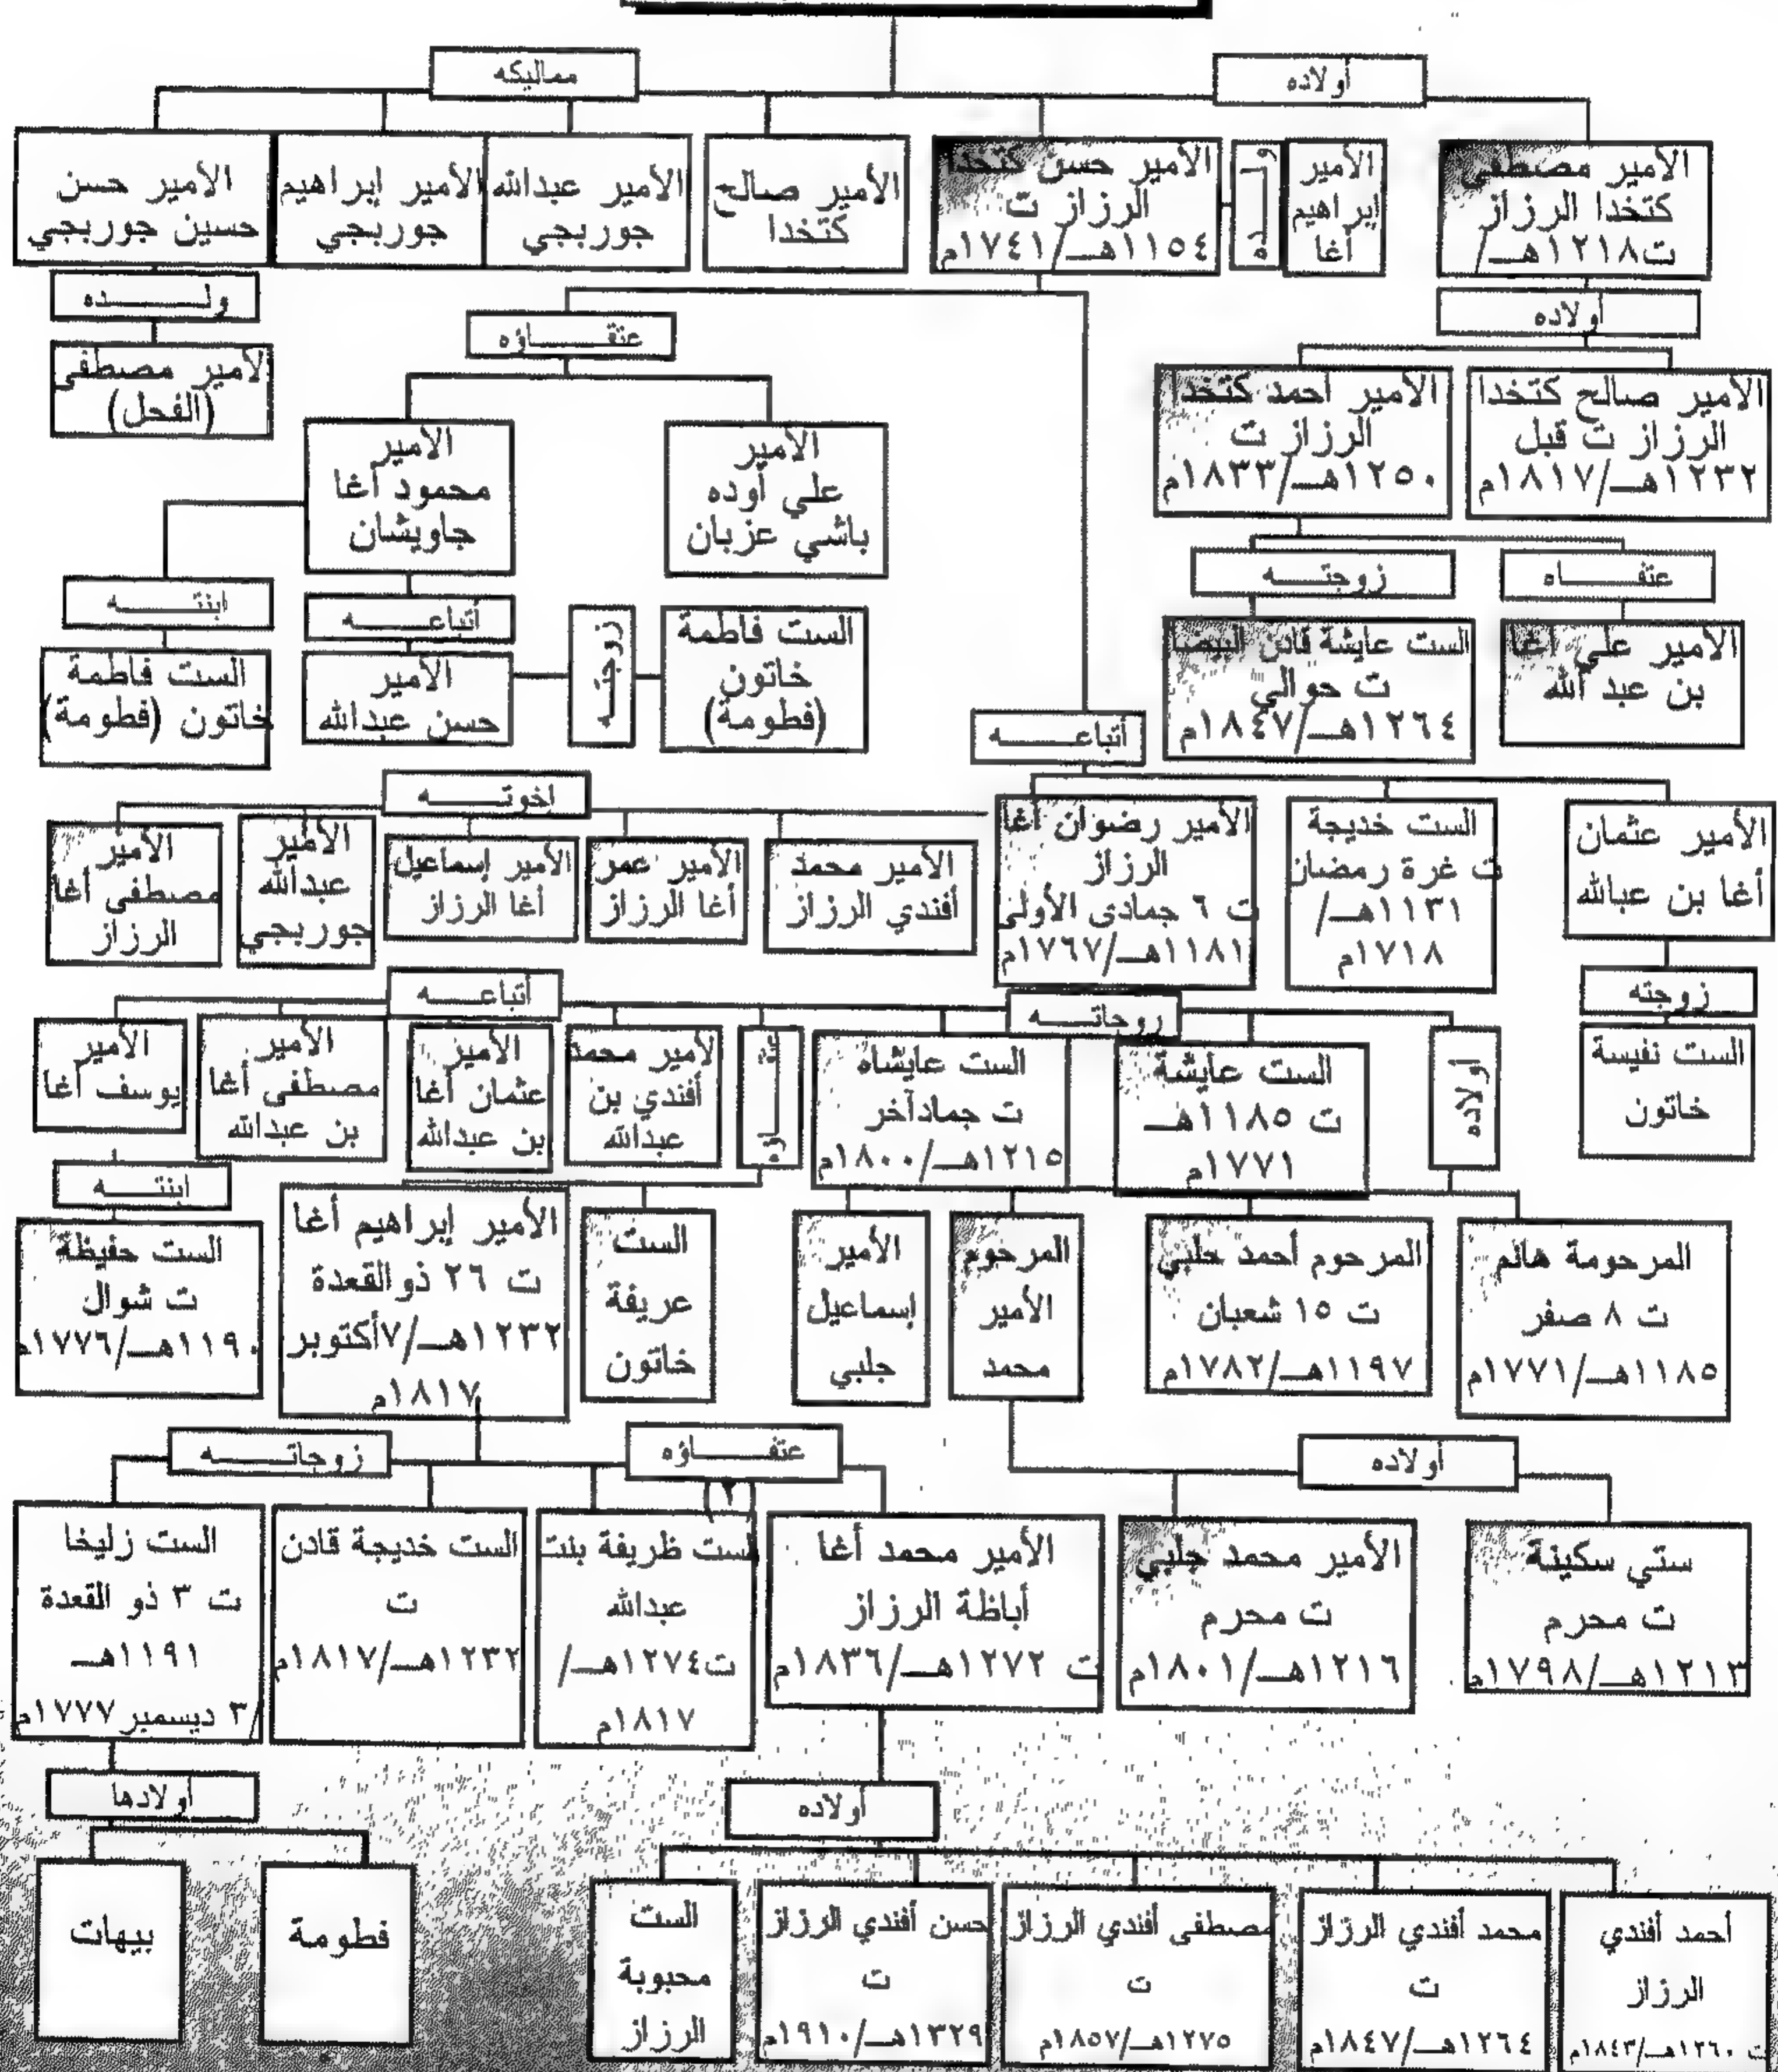 أولاده
مماليكه
الأمير مصطفى
كتخدا الرزاز
ت١٢١٨هـ/
الأمير
إبراهيم
أغا
ولده
الأمير حسن كتخدا
الرزاز ت
١١٥٤هـ/١٧٤١م
الأمير صالح
كتخدا
الأمير عبدالله
جوربجي
الأمير إبراهيم
جوربجي
الأمير حسن
حسين جوربجي
أولاده
ولده
عتقاؤه
الأمير مصطفى
(الفحل)
الأمير صالح كتخدا
الرزاز ت قبل
١٢٣٢هـ/١٨١٧م
الأمير احمد كتخدا
الرزاز ت
١٢٥٠هـ/١٨٣٣م
الأمير
علي أوده
باشي عزبان
الأمير
محمود أغا
جاويشان
عتقاه
زوجته
ابنته
أتباعه
الأمير علي أغا
بن عبد الله
الست عايشة قادن البيضا
ت حوالي
١٢٦٤هـ/١٨٤٧م
الست فاطمة
خاتون
(فطومة)
زوجته
الأمير
حسن عبدالله
الست فاطمة
خاتون (فطومة)
أتباعه
اخوته
الأمير عثمان
أغا بن عبالله
الست خديجة
ت غرة رمضان
١١٣١هـ/
١٧١٨م
الأمير رضوان أغا
الرزاز
ت ٦ جمادى الأولى
١١٨١هـ/١٧٦٧م
الأمير محمد
أفندي الرزاز
الأمير عمر
أغا الرزاز
الأمير إسماعيل
أغا الرزاز
الأمير
عبدالله
جوربجي
الأمير
مصطفى أغا
الرزاز
زوجته
زوجاته
أتباعه
الست نفيسة
خاتون
أولاده
الست عايشة
ت ١١٨٥هـ
١٧٧١م
الست عايشاه
ت جمادآخر
١٢١٥هـ/١٨٠٠م
عتقاؤه
الأمير محمد
أفندي بن
عبدالله
الأمير
عثمان أغا
بن عبدالله
الأمير
مصطفى أغا
بن عبدالله
الأمير
يوسف أغا
ابنته
المرحومة هانم
ت ٨ صفر
١١٨٥هـ/١٧٧١م
المرحوم أحمد جلبي
ت ١٥ شعبان
١١٩٧هـ/١٧٨٢م
المرحوم
الأمير
محمد
الأمير
إسماعيل
جلبي
الست
عريفة
خاتون
الأمير إبراهيم أغا
ت ٢٦ ذوالقعدة
١٢٣٢هـ/٧أكتوبر
١٨١٧م
الست حفيظة
ت شوال
١١٩٠هـ/١٧٧٦م
أولاده
عتقاؤه
(٢)
زوجاته
ستي سكينة
ت محرم
١٢١٣هـ/١٧٩٨م
الأمير محمد جلبي
ت محرم
١٢١٦هـ/١٨٠١م
الأمير محمد أغا
أباظة الرزاز
ت ١٢٧٢هـ/١٨٣٦م
الست ظريفة بنت
عبدالله
ت١٢٧٤هـ/
١٨١٧م
الست خديجة قادن
ت
١٢٣٢هـ/١٨١٧م
الست زليخا
ت ٣ ذو القعدة
١١٩١هـ
/٣ ديسمبر ١٧٧٧م
أولاده
أولادها
أحمد أفندي
الرزاز
ت ١٢٦٠هـ/١٨٤٣م
محمد أفندي الرزاز
ت
١٢٦٤هـ/١٨٤٧م
مصطفى أفندي الرزاز
ت
١٢٧٥هـ/١٨٥٧م
حسن أفندي الرزاز
ت
١٣٢٩هـ/١٩١٠م
الست
محبوبة
الرزاز
فطومة
بيهات